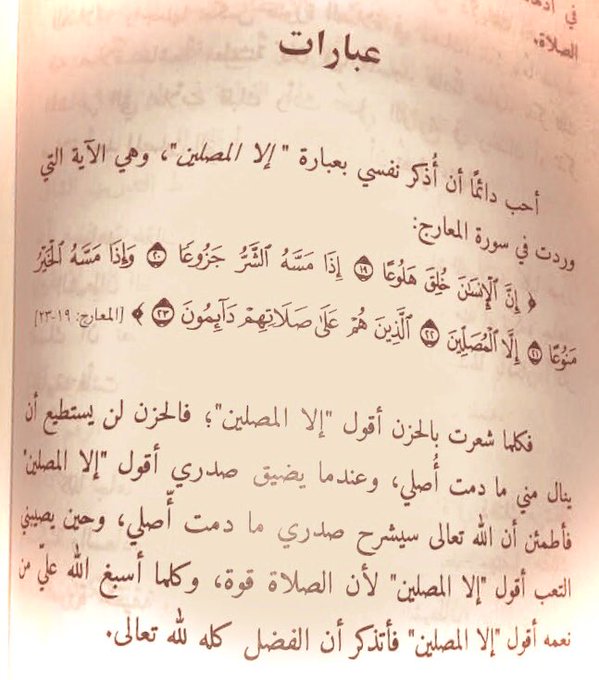 في
الصلاة.
عبارات
أحب دائمًا أن أُذكر نفسي بعبارة " إلا المصلين"، وهي الآية التي
وردت في سورة المعارج:
﴿ إِنَّ ٱلْإِنسَٰنَ خُلِقَ هَلُوعًا ۝١٩ إِذَا مَسَّهُ ٱلشَّرُّ جَزُوعًا ۝٢٠ وَإِذَا مَسَّهُ ٱلْخَيْرُ
مَنُوعًا ۝٢١ إِلَّا ٱلْمُصَلِّينَ ۝٢٢ ٱلَّذِينَ هُمْ عَلَىٰ صَلَاتِهِمْ دَآئِمُونَ ۝٢٣ ﴾ [المعارج: ١٩-٢٣]
فكلما شعرت بالحزن أقول "إلا المصلين"؛ فالحزن لن يستطيع أن
ينال مني ما دمت أُصلي، وعندما يضيق صدري أقول "إلا المصلين"
فأطمئن أن الله تعالى سيشرح صدري ما دمت أُصلي، وحين يصيبني
التعب أقول "إلا المصلين" لأن الصلاة قوة، وكلما أسبغ الله عليّ من
نعمه أقول "إلا المصلين" فأتذكر أن الفضل كله لله تعالى.